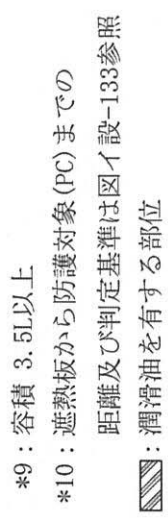 *9：容積 3.5L以上
*10：遮熱板から防護対象(PC)までの
距離及び判定基準は図イ設-133参照
：潤滑油を有する部位